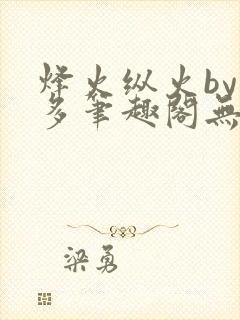 烽火纵火by
多笔趣阁無
梁勇